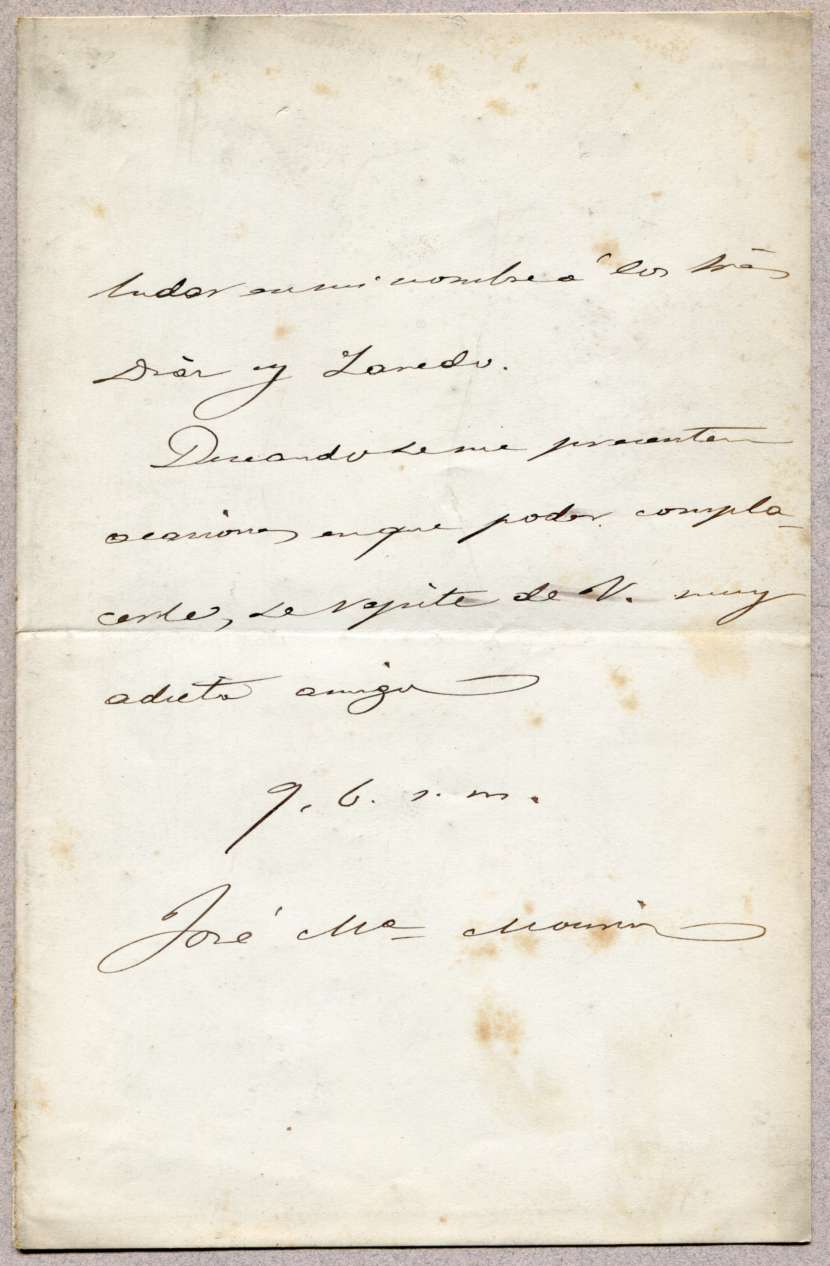 ludar en mi nombre á los Sres
Díaz y Laredo.
Deseando se me presenten
ocasiones en que poder compla-
cerle, se repite de V. muy
adicto amigo
q. b. s. m.
José Ma